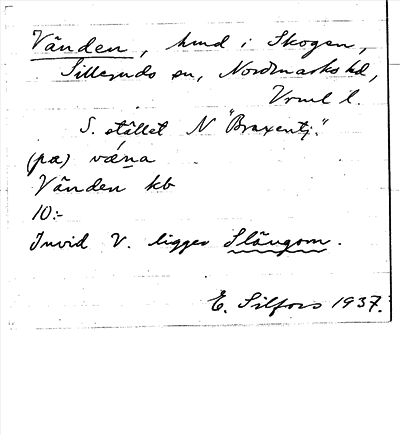 Vänden, hmd i Skogen,
Silleruds sn, Nordmarks hd,
Vrml l.
S. stället N "Braxentj."
(pa) væ̀na
Vänden kb
10:-
Invid V. ligger Slängom.
E. Silfors 1937.